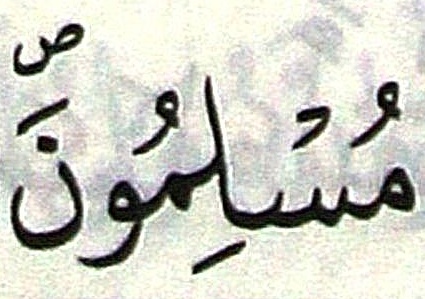 مُسْلِمُونَ ص